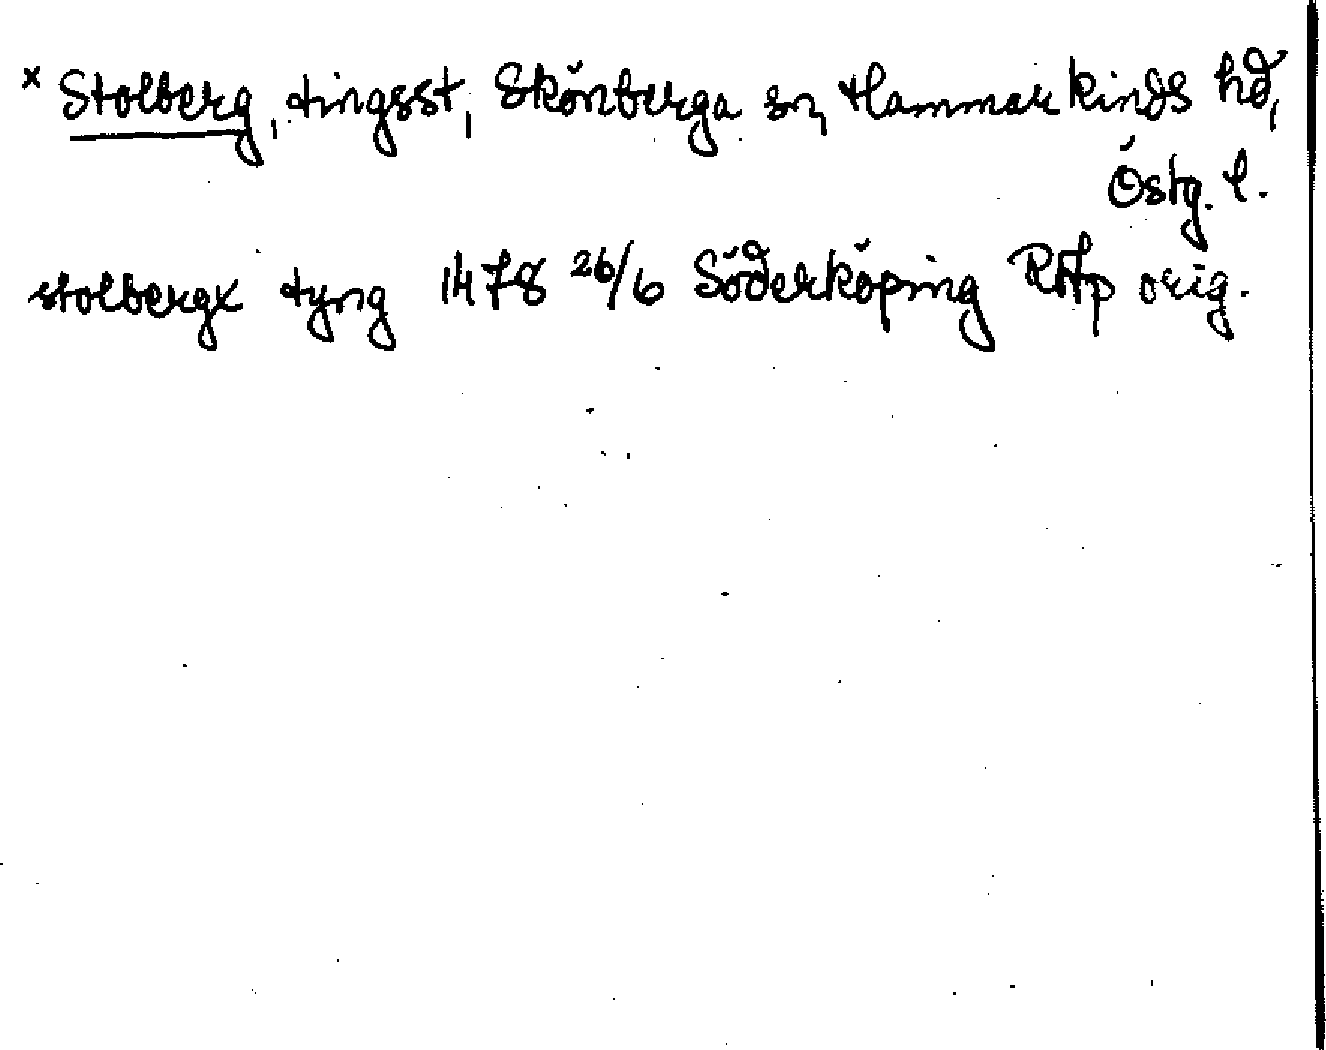 x Stolberg, tingsst, Skönberga sn, Hammarkinds hd,
Östg. l.
stolbergx tyng 1478 26/6 Söderköping RAp orig.